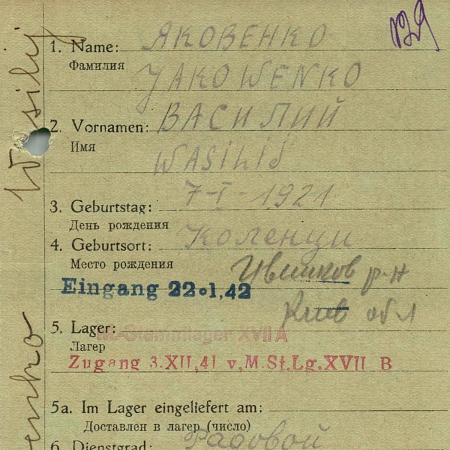 129
Wasilij
1. Name: ЯКОВЕНКО
Фамилия JAKOWENKO
2. Vornamen: ВАСИЛИЙ
Имя WASILIJ
3. Geburtstag: 7-I-1921
День рождения
4. Geburtsort: Коленци
Место рождения р-н
Eingang 22.1.42 Киев обл
5. Lager: M.-Stammlager XVII A
Лагер
Zugang 3.XII,41 v,M.St.Lg.XVII B
enko
5a. Im Lager eingeliefert am:
Доставлен в лагер (число)
6. Dienstgrad: Радовой